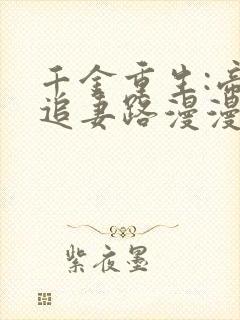 千金重生:
追妻路漫漫
紫夜墨